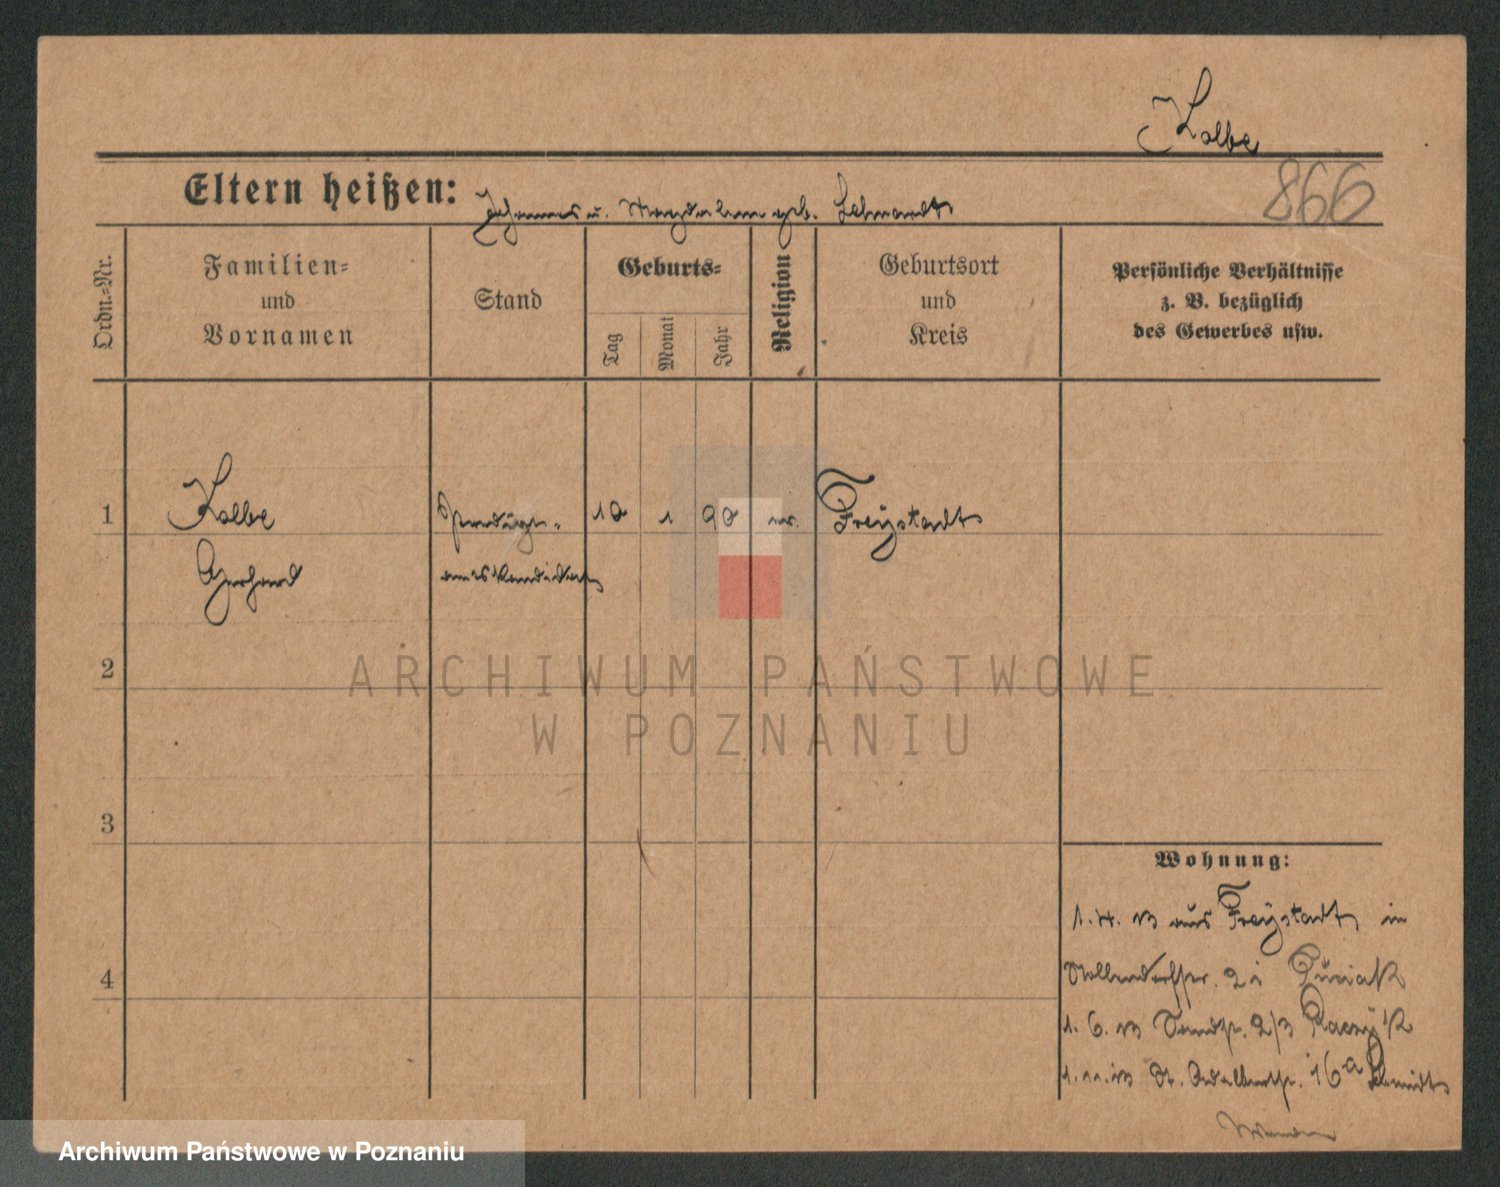 Kolbe
866
Eltern heißen: Johannes u. Magdalena geb. Lehnardt
Ordn.-Nr.
Familien-
und
Vornamen
Stand
Geburts-
Tag
Monat
Jahr
Religion
Geburtsort
und
Kreis
Persönliche Verhältnisse
z. B. bezüglich
des Gewerbes usw.
1
Kolbe
Gerhard
amtskandidat
10
1
90
ev.
Freystadt
2
3
4
ARCHIWUM PAŃSTWOWE
W POZNANIU
Wohnung:
1.4.13 aus Freystadt in
Nollendorfstr. 2
1.6.13 2/3
1.11.13 St. Adalbertstr. 16a Schmidt
Archiwum Państwowe w Poznaniu